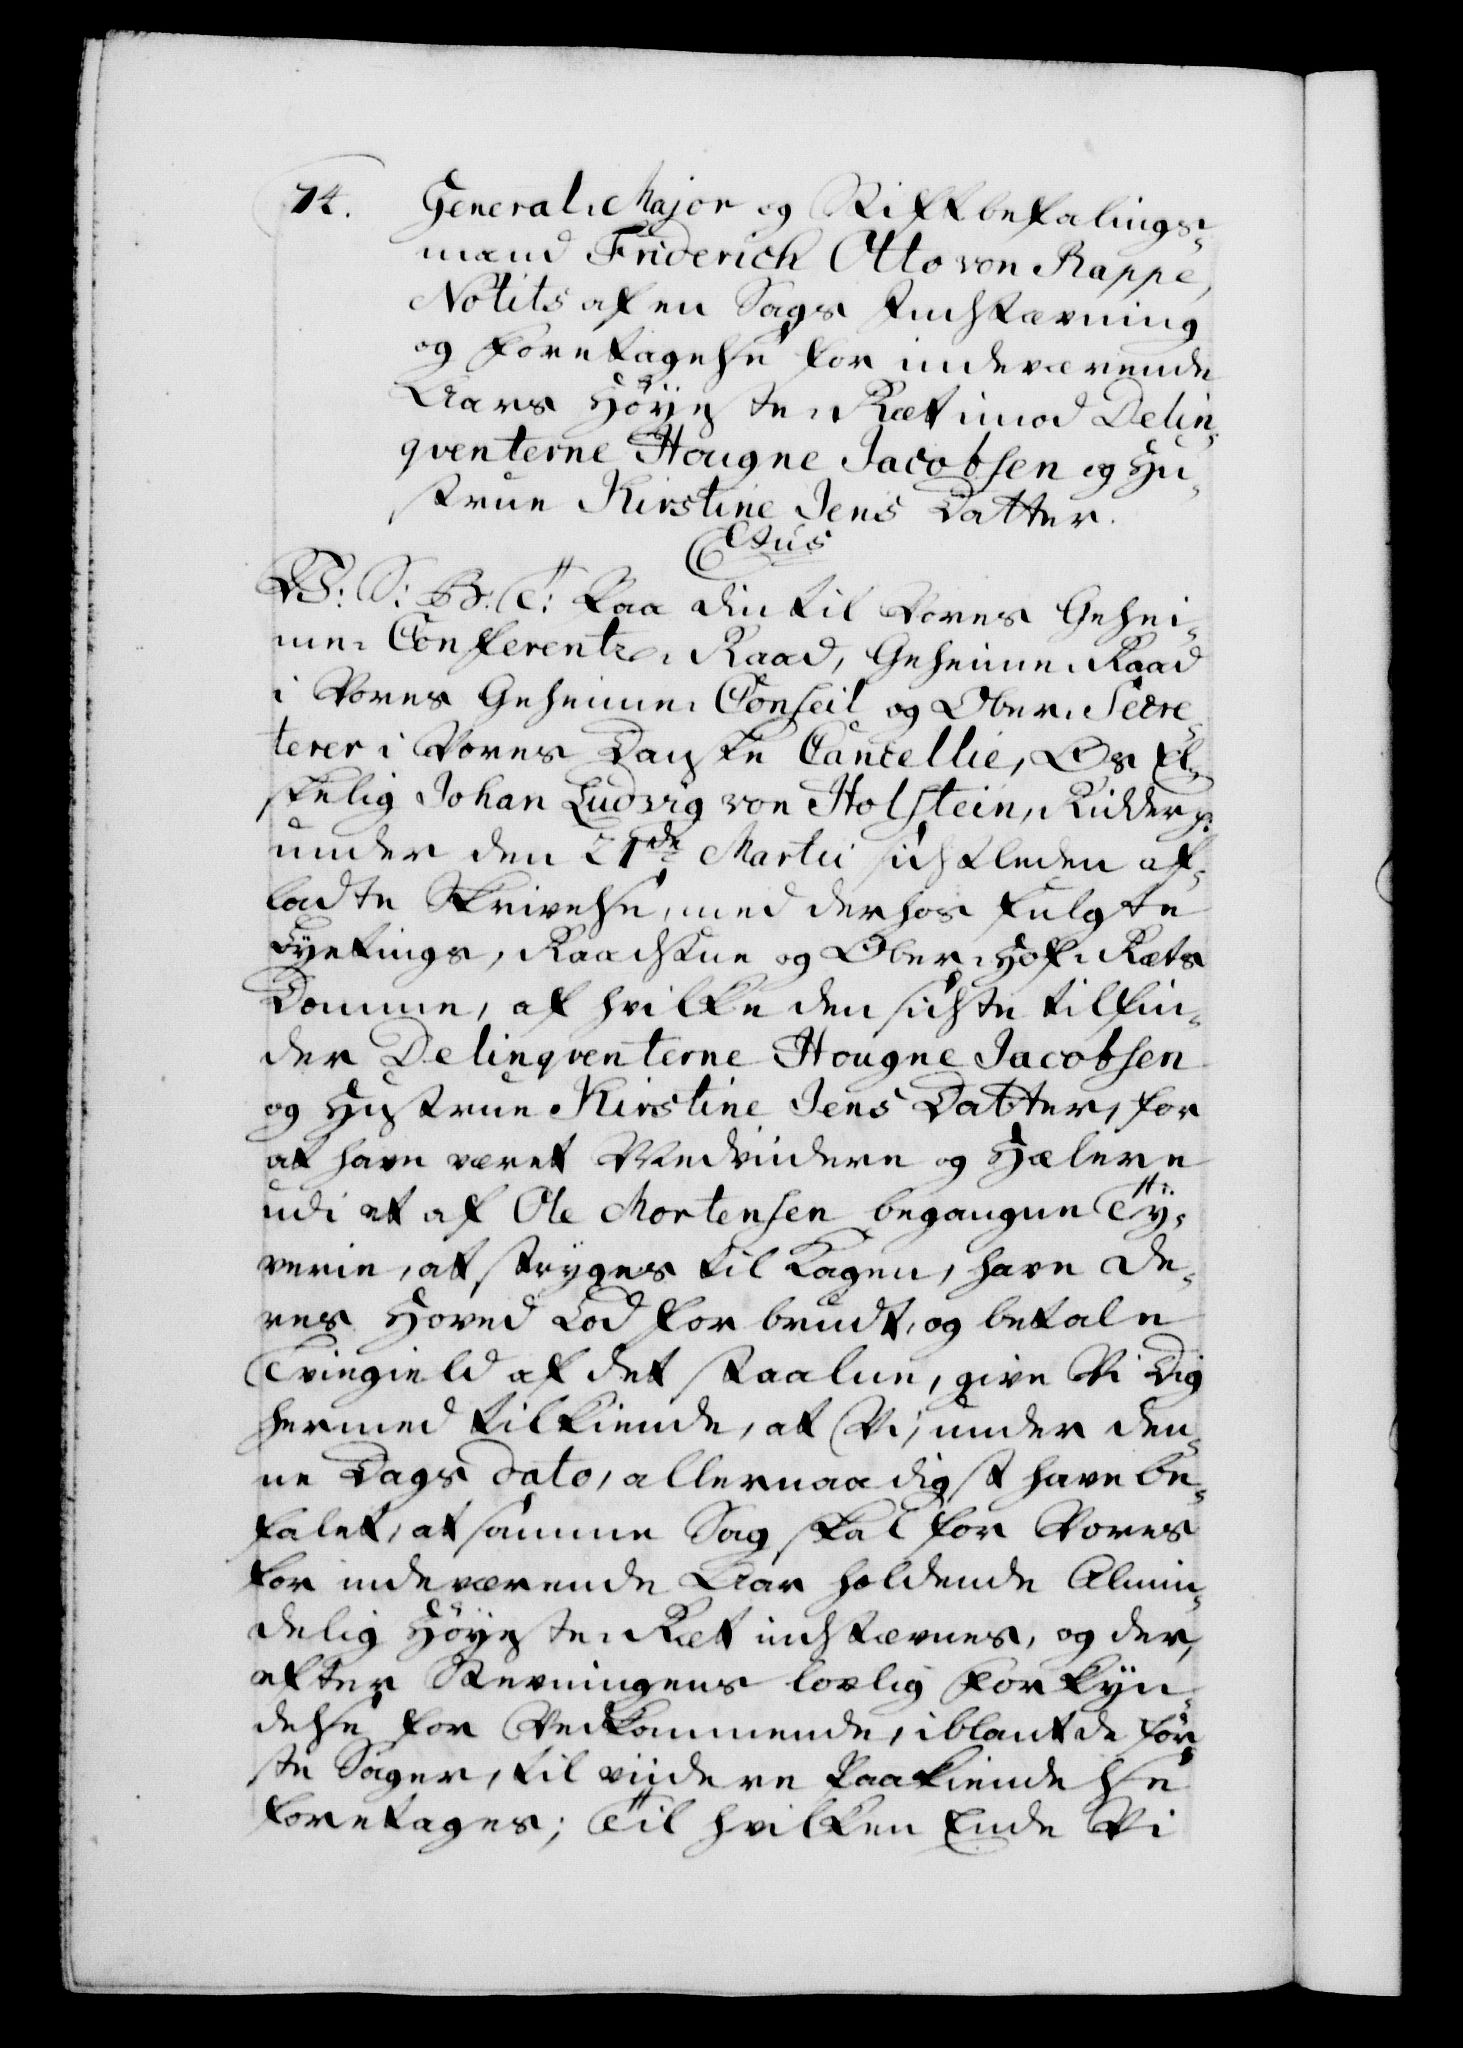 74. General-Major og Stiftbefalings-
mand Friderich Otto von Rappe,
Notits af en Sags Indstævning
og Foretagelse for indeværende
Aars Höyeste-Ret imod Delin-
qventerne Hougne Jacobsen og Hu-
strue Kirstine Jens Datter.
C6tus
V: S: G: T: Paa din til Vores Gehei-
me-Conferentz-Raad, Geheime-Raad
i Vores Geheime-Conseil og Ober-Secre-
terer i Vores Danske Cancellie, Os El-
skelig Johan Ludvig von Holstein, Ridder p:
under den 21de Martii sidstleden af-
ladte Skrivelse, med derhos fulgte
Byetings, Raadstue og Ober-Hof-Rets
Domme, af hvilke den sidste tilfin-
der Delinqventerne Hougne Jacobsen
og Hustrue Kirstine Jens Datter, for
at have været Medvidere og Hælere
udi et af Ole Mortensen begangne Ty-
verie, at stryges til Kagen, have De-
res Hoved Lod forbrudt, og betale
Tviegield af det staalne, give Vi Dig
hermed tilkiende, at Vi, under Den-
ne Dags dato, allernaadigst have be-
falet, at samme Sag skal for Vores
for indeværende Aar holdende Almin-
delig Höyeste-Ret indstævnes, og der,
efter Stevningens lovlig Forkyn-
delse for Vedkommende, iblant de för-
ste Sager, til viidere Paakiendelse
foretages; Til hvilken Ende Vi